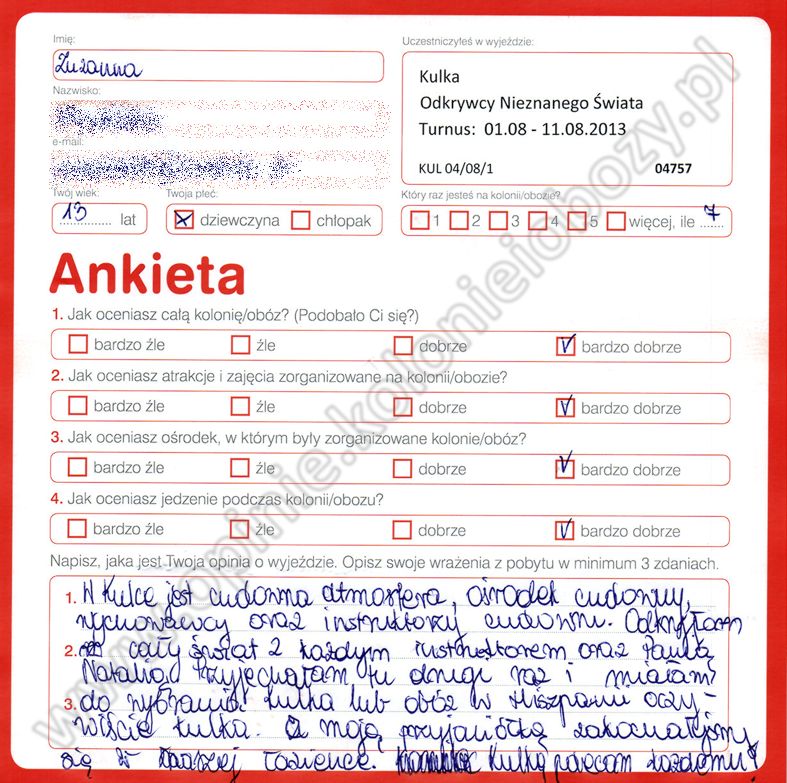 Imię:
Zuzanna
Uczestniczyłeś w wyjeździe:
Kulka
Odkrywcy Nieznanego Świata
Turnus: 01.08 - 11.08.2013
KUL 04/08/1 04757
Nazwisko:
e-mail:
Twój wiek:
13 lat
Twoja płeć:
dziewczyna chłopak
Który raz jesteś na kolonii/obozie?
1 2 3 4 5 więcej, ile 7
Ankieta
1. Jak oceniasz całą kolonię/obóz? (Podobało Ci się?)
bardzo źle źle dobrze V bardzo dobrze
2. Jak oceniasz atrakcje i zajęcia zorganizowane na kolonii/obozie?
bardzo źle źle dobrze V bardzo dobrze
3. Jak oceniasz ośrodek, w którym były zorganizowane kolonie/obóz?
bardzo źle źle dobrze V bardzo dobrze
4. Jak oceniasz jedzenie podczas kolonii/obozu?
bardzo źle źle dobrze V bardzo dobrze
Napisz, jaka jest Twoja opinia o wyjeździe. Opisz swoje wrażenia z pobytu w minimum 3 zdaniach.
1. W Kulce jest cudowna atmosfera, ośrodek cudowny,
wychowawcy oraz instruktorzy cudowni. Odkryłam
2. cały świat z każdym instruktorem oraz Panią
Natalią. Przyjechałam tu drugi raz i miałam
3. do wybrania kulka lub obóz w Hiszpanii oczy-
wiście kulka. Z moją przyjaciółką zakochałyśmy
się w naszej łazience. Kulkę polecam każdemu!
www.opinie.kolonieiobozy.pl